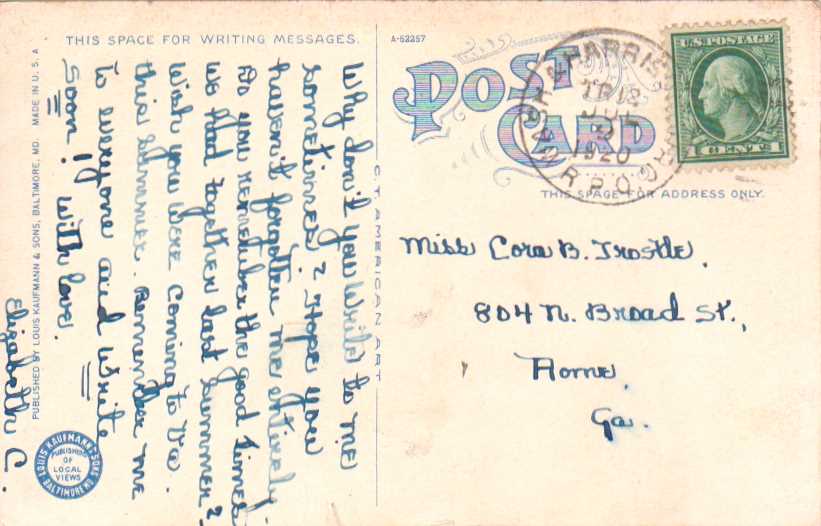 THIS SPACE FOR WRITING MESSAGES.
Why don't you write to me
sometimes? Hope you
haven't forgotten me entirely.
Do you remember the good times
we had together last summer?
Wish you were coming to Va.
this summer. Remember me
to everyone and write
soon! With love.
Elizabeth C.
PUBLISHED BY LOUIS KAUFMANN & SONS, BALTIMORE, MD. MADE IN U. S. A
LOUIS KAUFMANN & SONS
BALTIMORE MD.
PUBLISHERS
OF
LOCAL
VIEWS
C. T. AMERICAN ART
A-52257
POST
CARD
HARRIS
TR 12
JUL
1920
R.P.O.
U.S. POSTAGE
1 CENT 1
THIS SPACE FOR ADDRESS ONLY.
Miss Cora B. Trostle,
804 N. Broad St.,
Rome,
Ga.